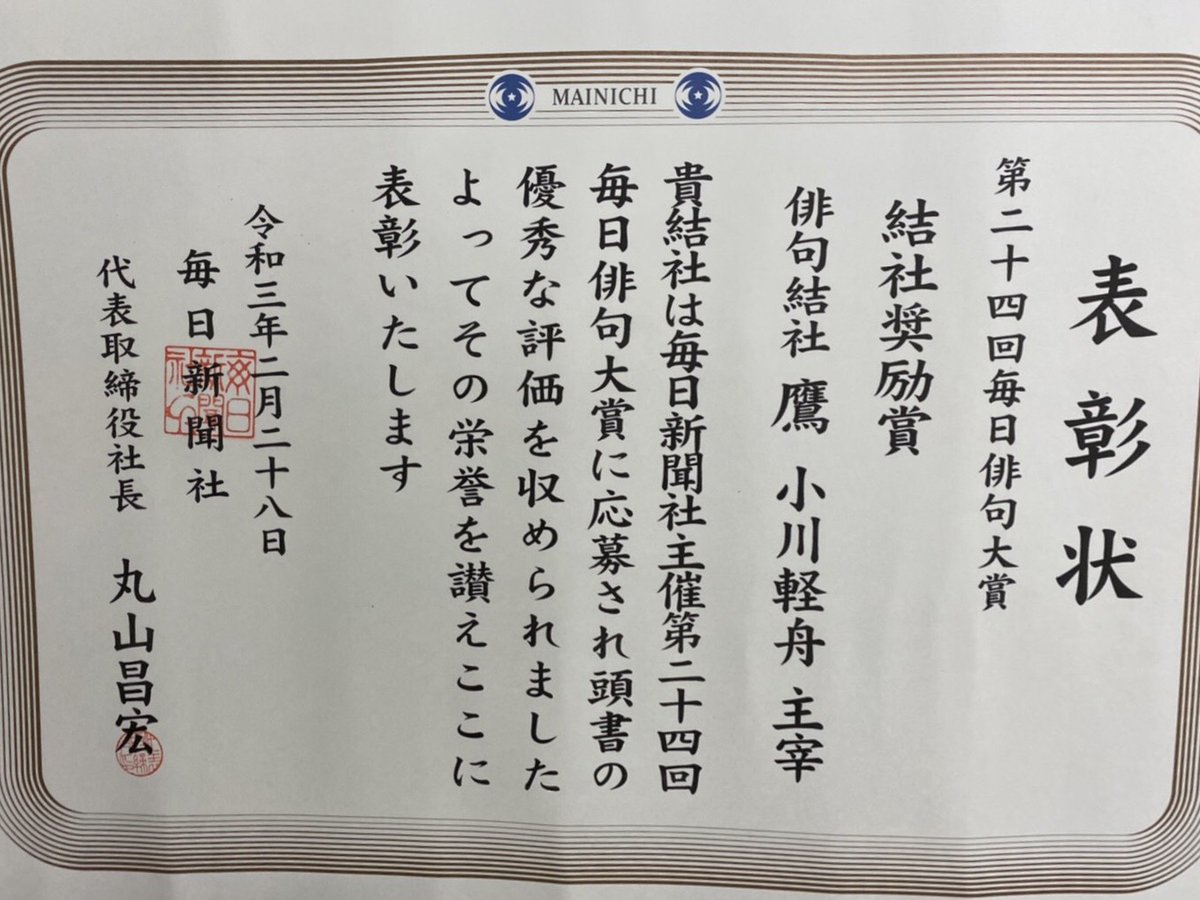 MAINICHI
表彰状
第二十四回毎日俳句大賞
結社奨励賞
俳句結社 鷹 小川軽舟 主宰
貴結社は毎日新聞社主催第二十四回
毎日俳句大賞に応募され頭書の
優秀な評価を収められました
よってその栄誉を讃えここに
表彰いたします
令和三年二月二十八日
毎日新聞社
代表取締役社長 丸山昌宏